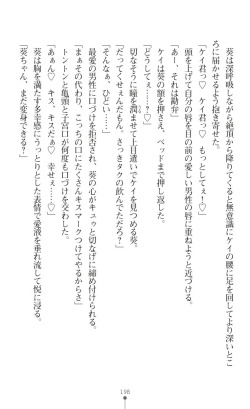 葵は深呼吸しながら絶頂から降りてくると無意識にケイの腰に足を回してより深いとこ
ろに届かせるよう抱き寄せた。
「ケイ君っ♡　ケイ君っ♡　もっとしてぇ！♡」
　頭を上げて自分の唇を目の前の愛しい男性の唇に重ねようと近づける。
「あー、それは勘弁」
　ケイは葵の額を押さえ、ベッドまで押し返した。
「どうしてぇ……？♡」
　切なそうに瞳を潤ませて上目遣いでケイを見つめる葵。
「だってくせぇんだもん。さっきタクの飲んでただろ？」
「そんなぁ、ひどい……♡」
　最愛の男性に口づけを拒否され、葵の心がキュゥと切なげに締め付けられる。
「まぁその代わり、こっちの口にたくさんキスマークつけてやるからさ」
　トントンと亀頭と子宮口が何度も口づけを交わした。
「あぁん♡　キス、キスだぁ♡　幸せぇ……♡」
　葵は胸を満たす多幸感にうっとりとした表情で愛液を垂れ流して悦に浸る。
「葵ちゃん、まだ変身できる？」
198